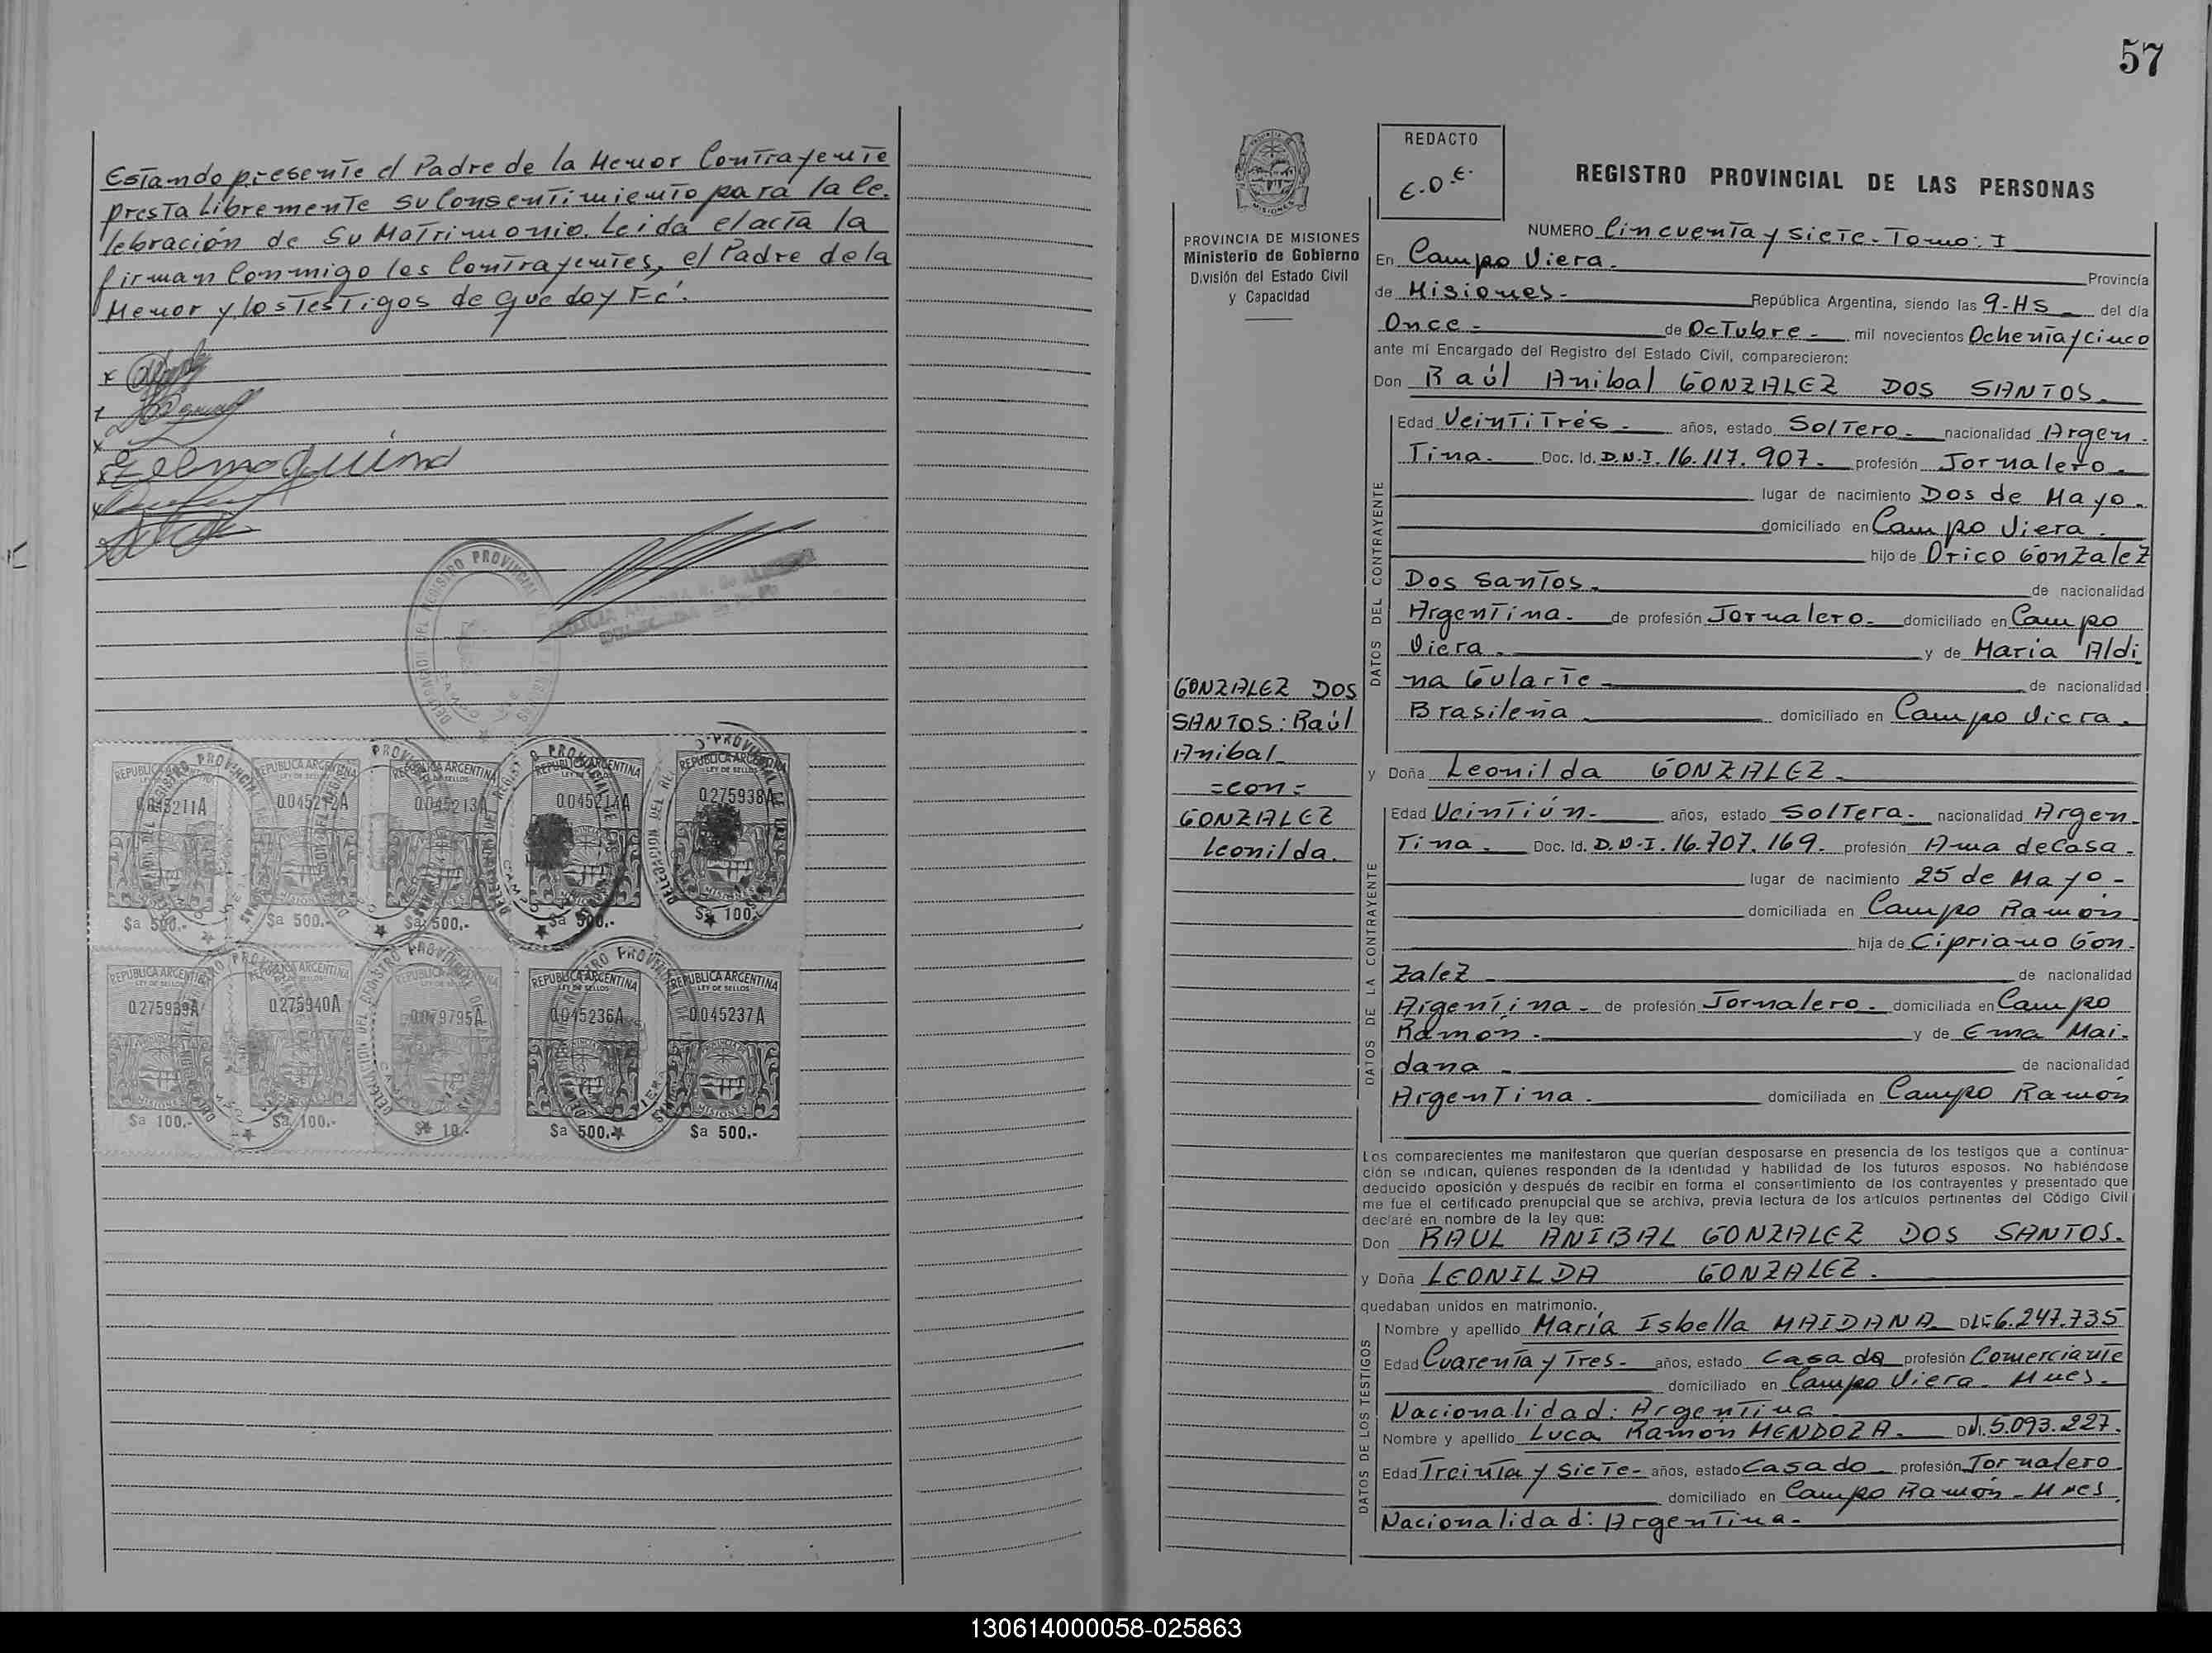 Estando presente el Padre de la Menor Contrayente
presta libremente su Consentimiento para la Ce-
lebración de Su Matrimonio. Leida el acta la
firman Conmigo los Contrayentes, el Padre de la
Menor y los Testigos de que doy Fé.
REPUBLICA ARGENTINA
LEY DE SELLOS
0.045211A
MISIONES
$a 500.-
REPUBLICA ARGENTINA
LEY DE SELLOS
0.045212A
MISIONES
$a 500.-
REPUBLICA ARGENTINA
LEY DE SELLOS
0.045213A
$a 500.-
REPUBLICA ARGENTINA
LEY DE SELLOS
0.045214A
MISIONES
$a 500.-
REPUBLICA ARGENTINA
LEY DE SELLOS
0.275938A
MISIONES
$a 100.-
REPUBLICA ARGENTINA
LEY DE SELLOS
0.275939A
MISIONES
$a 100.-
REPUBLICA ARGENTINA
LEY DE SELLOS
0.275940A
$a 100.-
REPUBLICA ARGENTINA
$a 10.-
REPUBLICA ARGENTINA
LEY DE SELLOS
0.045236A
MISIONES
$a 500.-
REPUBLICA ARGENTINA
LEY DE SELLOS
0.045237A
MISIONES
$a 500.-
57
MISIONES
PROVINCIA DE MISIONES
Ministerio de Gobierno
División del Estado Civil
y Capacidad
GONZALEZ DOS
SANTOS: Raúl
Anibal
=con=
GONZALEZ
Leonilda.
REDACTO
E.O.E.
REGISTRO PROVINCIAL DE LAS PERSONAS
NUMERO Cincuenta y Siete- Tomo: I
En Campo Viera.- Provincia
de Misiones- República Argentina, siendo las 9-HS - del día
Once - de Octubre - mil novecientos Ochenta y cinco
ante mí Encargado del Registro del Estado Civil, comparecieron:
Don Raúl Anibal GONZALEZ DOS SANTOS.
DATOS DEL CONTRAYENTE
Edad Veintitrés - años, estado Soltero - nacionalidad Argen-
tina- Doc. Id. D.N.I. 16.117.907- profesión Jornalero -
lugar de nacimiento Dos de Mayo -
domiciliado en Campo Viera.
hijo de Orico Gonzalez
Dos Santos - de nacionalidad
Argentina - de profesión Jornalero - domiciliado en Campo
Viera - y de María Aldi
na Gularte - de nacionalidad
Brasileña domiciliado en Campo Viera -
y Doña Leonilda GONZALEZ -
DATOS DE LA CONTRAYENTE
Edad Veintiún - años, estado Soltera - nacionalidad Argen-
tina - Doc. Id. D.N.I. 16.707.169- profesión Ama de Casa -
lugar de nacimiento 25 de Mayo -
domiciliada en Campo Ramón
hija de Cipriano Gon-
zalez - de nacionalidad
Argentina - de profesión Jornalero - domiciliada en Campo
Ramón - y de Ema Mai-
dana - de nacionalidad
Argentina - domiciliada en Campo Ramón
Los comparecientes me manifestaron que querían desposarse en presencia de los testigos que a continua-
ción se indican, quienes responden de la identidad y habilidad de los futuros esposos. No habiéndose
deducido oposición y después de recibir en forma el consentimiento de los contrayentes y presentado que
me fue el certificado prenupcial que se archiva, previa lectura de los artículos pertinentes del Código Civil
declaré en nombre de la ley que:
Don RAUL ANIBAL GONZALEZ DOS SANTOS.
y Doña LEONILDA GONZALEZ.
quedaban unidos en matrimonio.
DATOS DE LOS TESTIGOS
Nombre y apellido María Isbella MAIDANA 6.247.735
Edad Cuarenta y Tres - años, estado Casada profesión Comerciante
domiciliado en Campo Viera - Mnes.
Nacionalidad: Argentina
Nombre y apellido Luca Ramón MENDOZA - 5.093.227.
Edad Treinta y Siete - años, estado Casado - profesión Jornalero
domiciliado en Campo Ramón - Mnes.
Nacionalidad: Argentina -
130614000058-025863